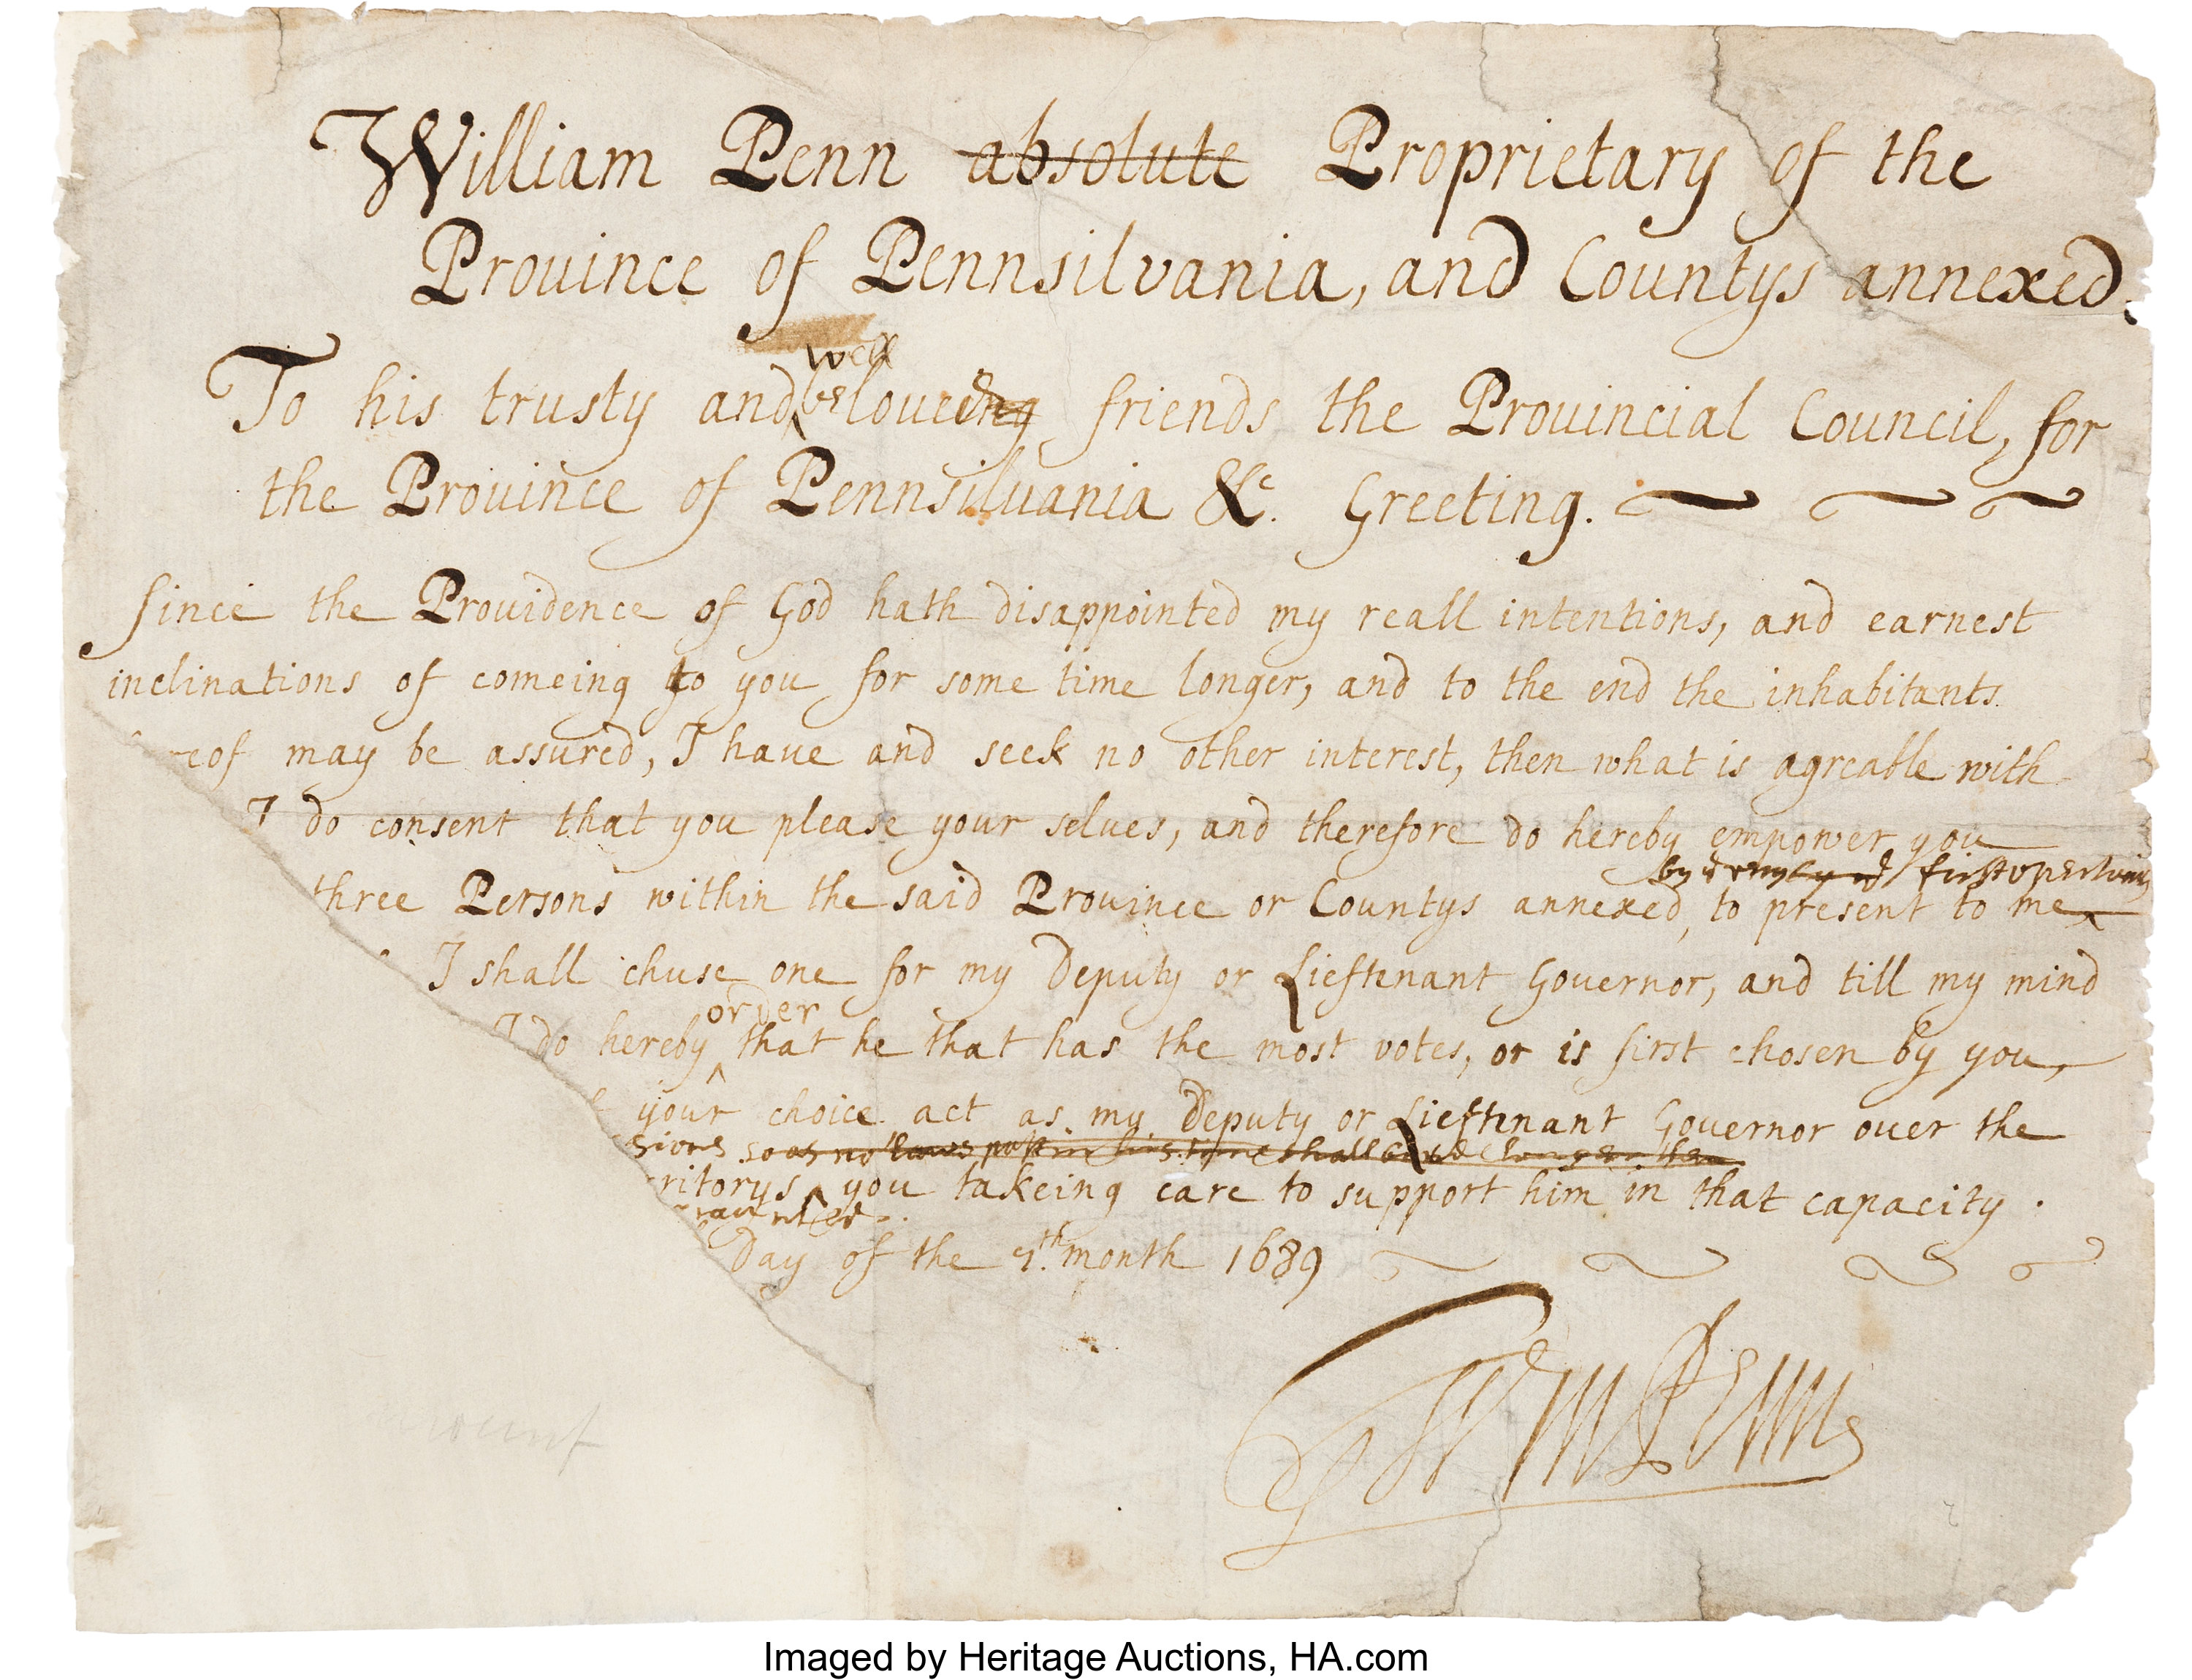 William Penn absolute Proprietary of the
Prouince of Pennsilvania, and Countys annexed.
well
To his trusty and be loueing friends the Prouincial Council, for
the Prouince of Pennsiluania &c. Greeting.
Since the Prouidence of God hath disappointed my reall intentions, and earnest
inclinations of comeing to you for some time longer, and to the end the inhabitants
eof may be assured, I haue and seek no other interest, then what is agreable with
I do consent that you please your selues, and therefore do hereby empower you
by first opertunity
three Persons within the said Prouince or Countys annexed, to present to me
I shall chuse one for my Deputy or Lieftenant Gouernor, and till my mind
order
I do hereby that he that has the most votes, or is first chosen by you,
your choice act as my Deputy or Lieftenant Gouernor ouer the
sions so as no laws past in his time shall
ritorys you takeing care to support him in that capacity.
Day of the 7.th month 1689
Wm Penn
mount
Imaged by Heritage Auctions, HA.com